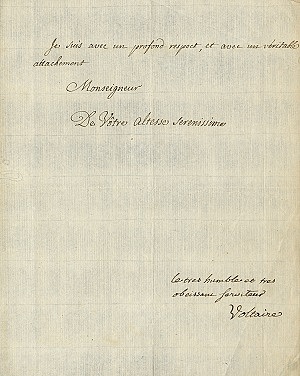 Je suis avec un profond respect, et avec un véritable
attachement
Monseigneur
De Vôtre Altesse Serenissime
le tres humble et tres
obeissant serviteur
Voltaire